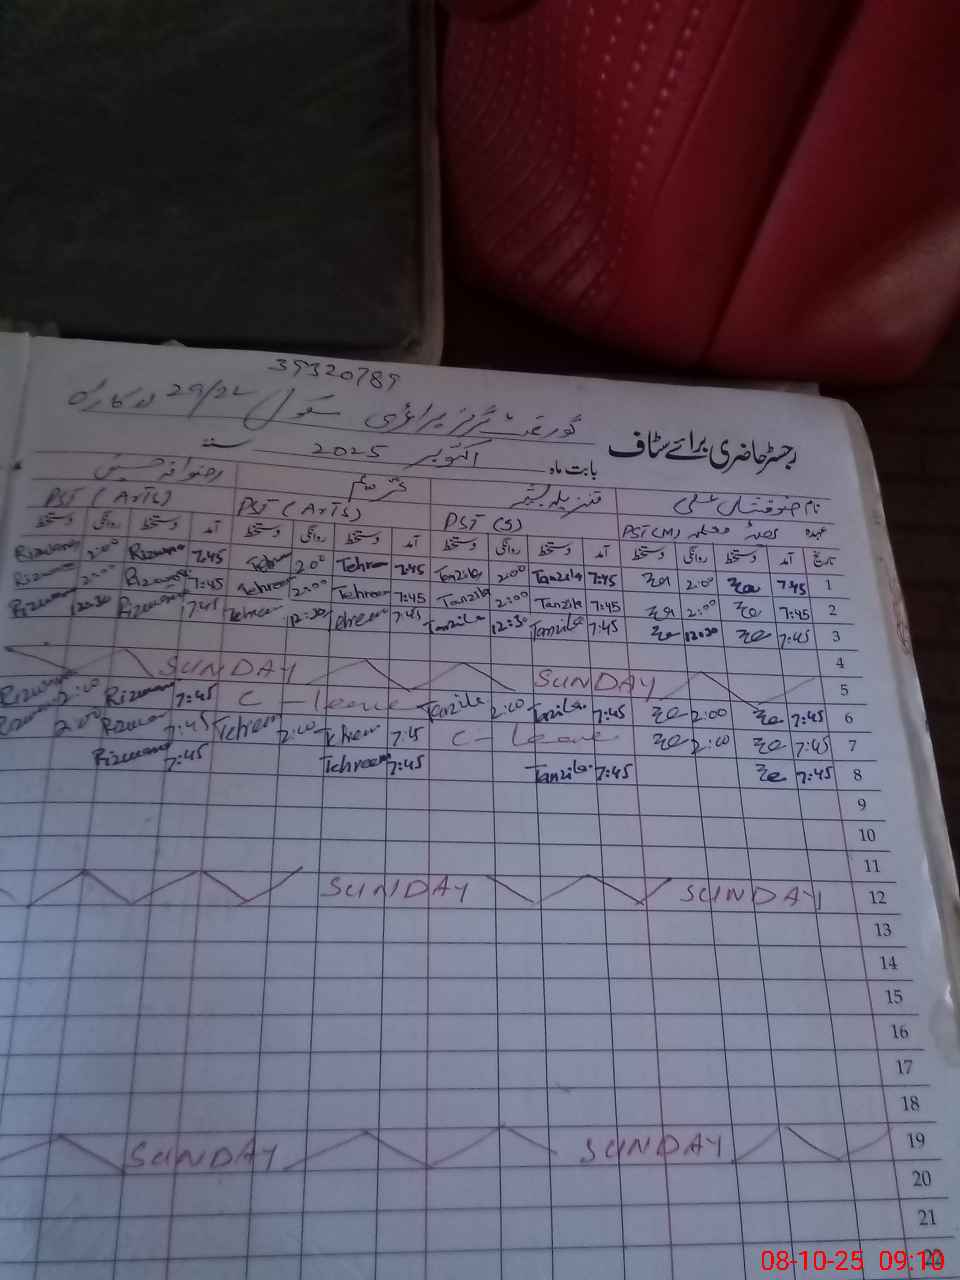 39320789
گورنمنٹ گرلز پرائمری سکول 29/2L اوکاڑہ
رجسٹر حاضری برائے سٹاف
بابت ماہ اکتوبر 2025
نام
PST (M) PST (S) PST (Arts) PST (Arts)
عہدہ
تاریخ آمد دستخط روانگی دستخط آمد دستخط روانگی دستخط آمد دستخط روانگی دستخط آمد دستخط روانگی دستخط
1 7:45 2:00 7:45 Tanzila 2:00 Tanzila 7:45 Tehreem 2:00 Tehreem 7:45 Rizwana 2:00 Rizwana
2 7:45 2:00 7:45 Tanzila 2:00 Tanzila 7:45 Tehreem 2:00 Tehreem 7:45 Rizwana 2:00 Rizwana
3 7:45 12:30 7:45 Tanzila 12:30 Tanzila 7:45 Tehreem 12:30 Tehreem 7:45 Rizwana 12:30 Rizwana
4
5 SUNDAY SUNDAY
6 7:45 2:00 7:45 Tanzila 2:00 Tanzila C - leave 7:45 Rizwana 2:00 Rizwana
7 7:45 2:00 C - Leave 7:45 Tehreem 2:00 Tehreem 7:45 Rizwana 2:00 Rizwana
8 7:45 7:45 Tanzila 7:45 Tehreem 7:45 Rizwana
9
10
11
12 SUNDAY SUNDAY
13
14
15
16
17
18
19 SUNDAY SUNDAY
20
21
22
08-10-25 09:10